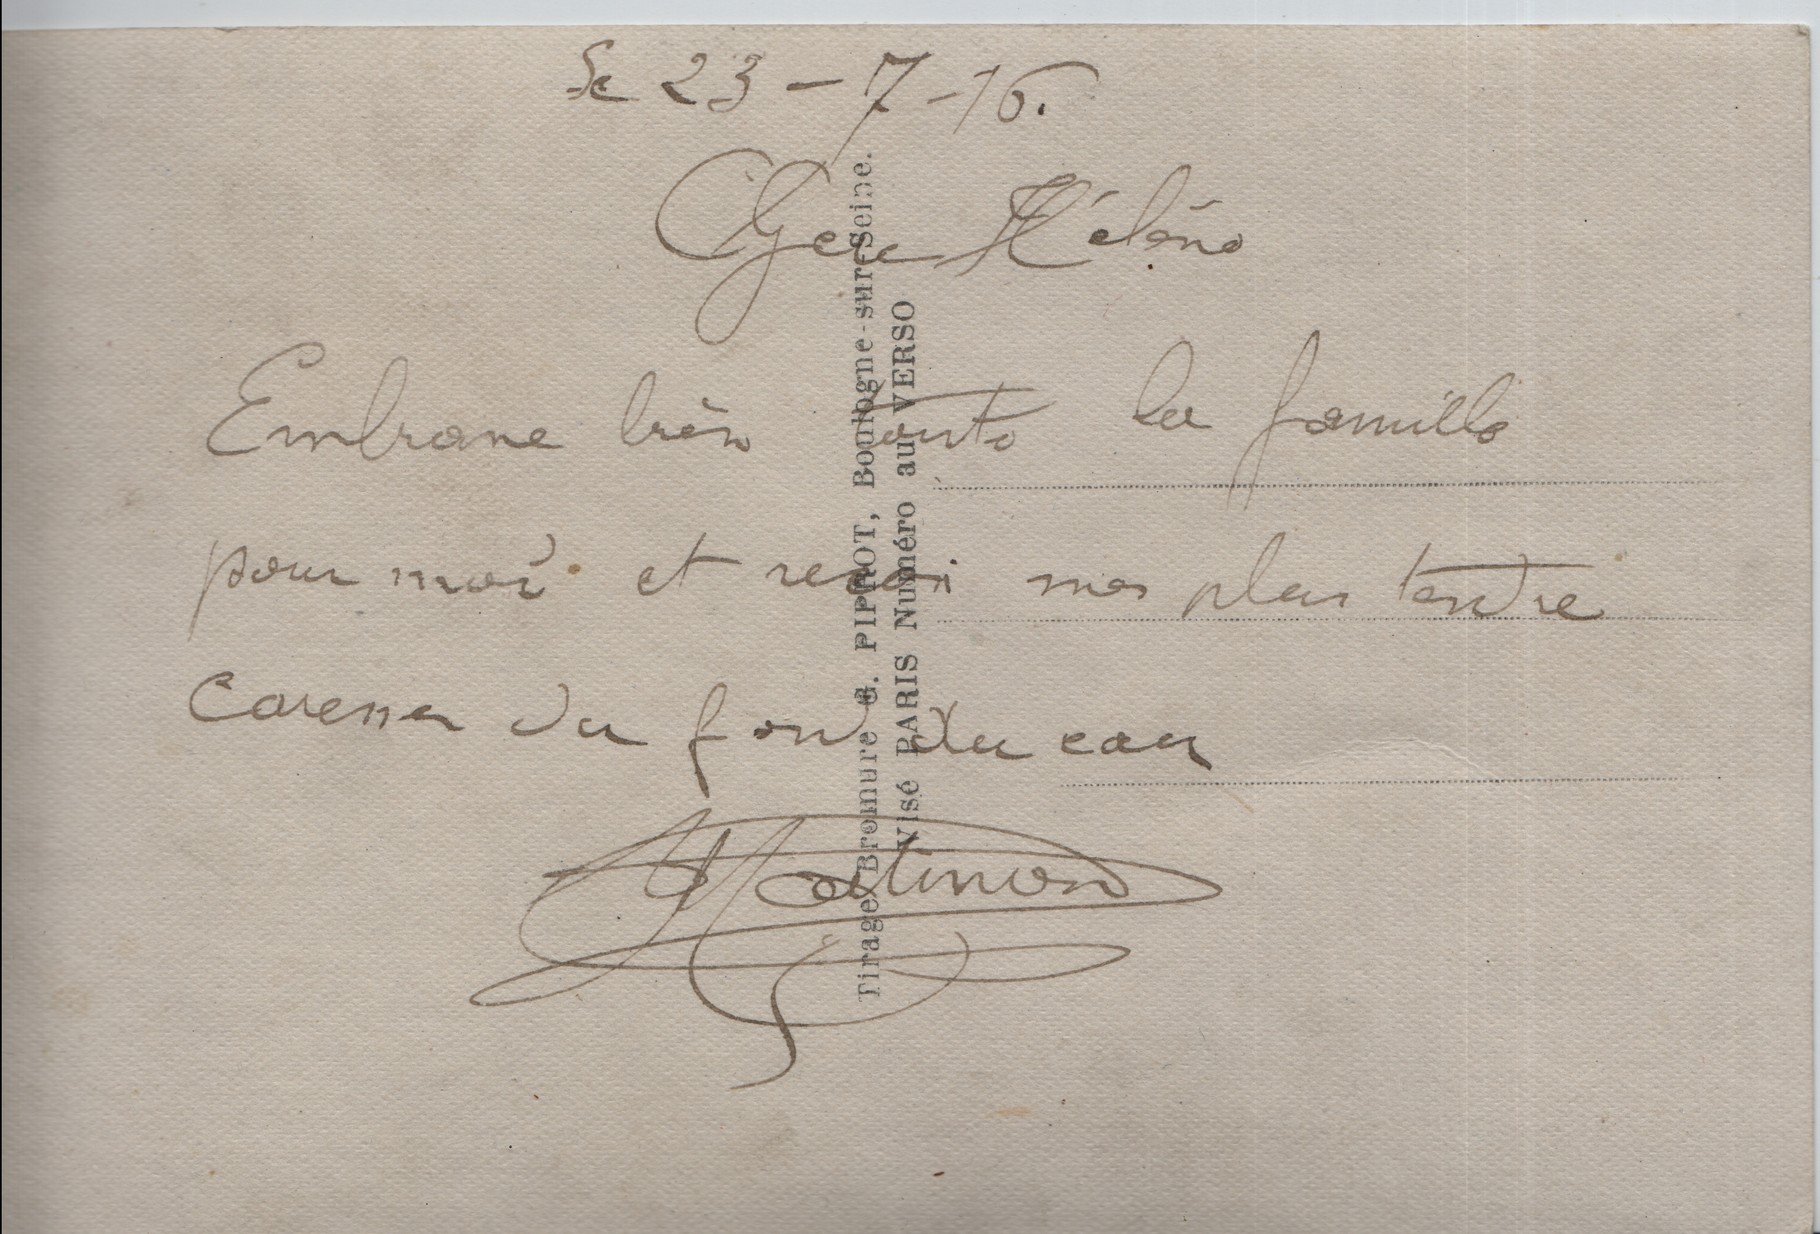 Le 23-7-16.
Chere Hélène
Embrasse bien toute la famille
pour moi et recoi mes plus tendre
caresses du fond du cœur
Tirage Bromure G. PIPROT, Boulogne-sur-Seine.
Visé PARIS Numéro au VERSO